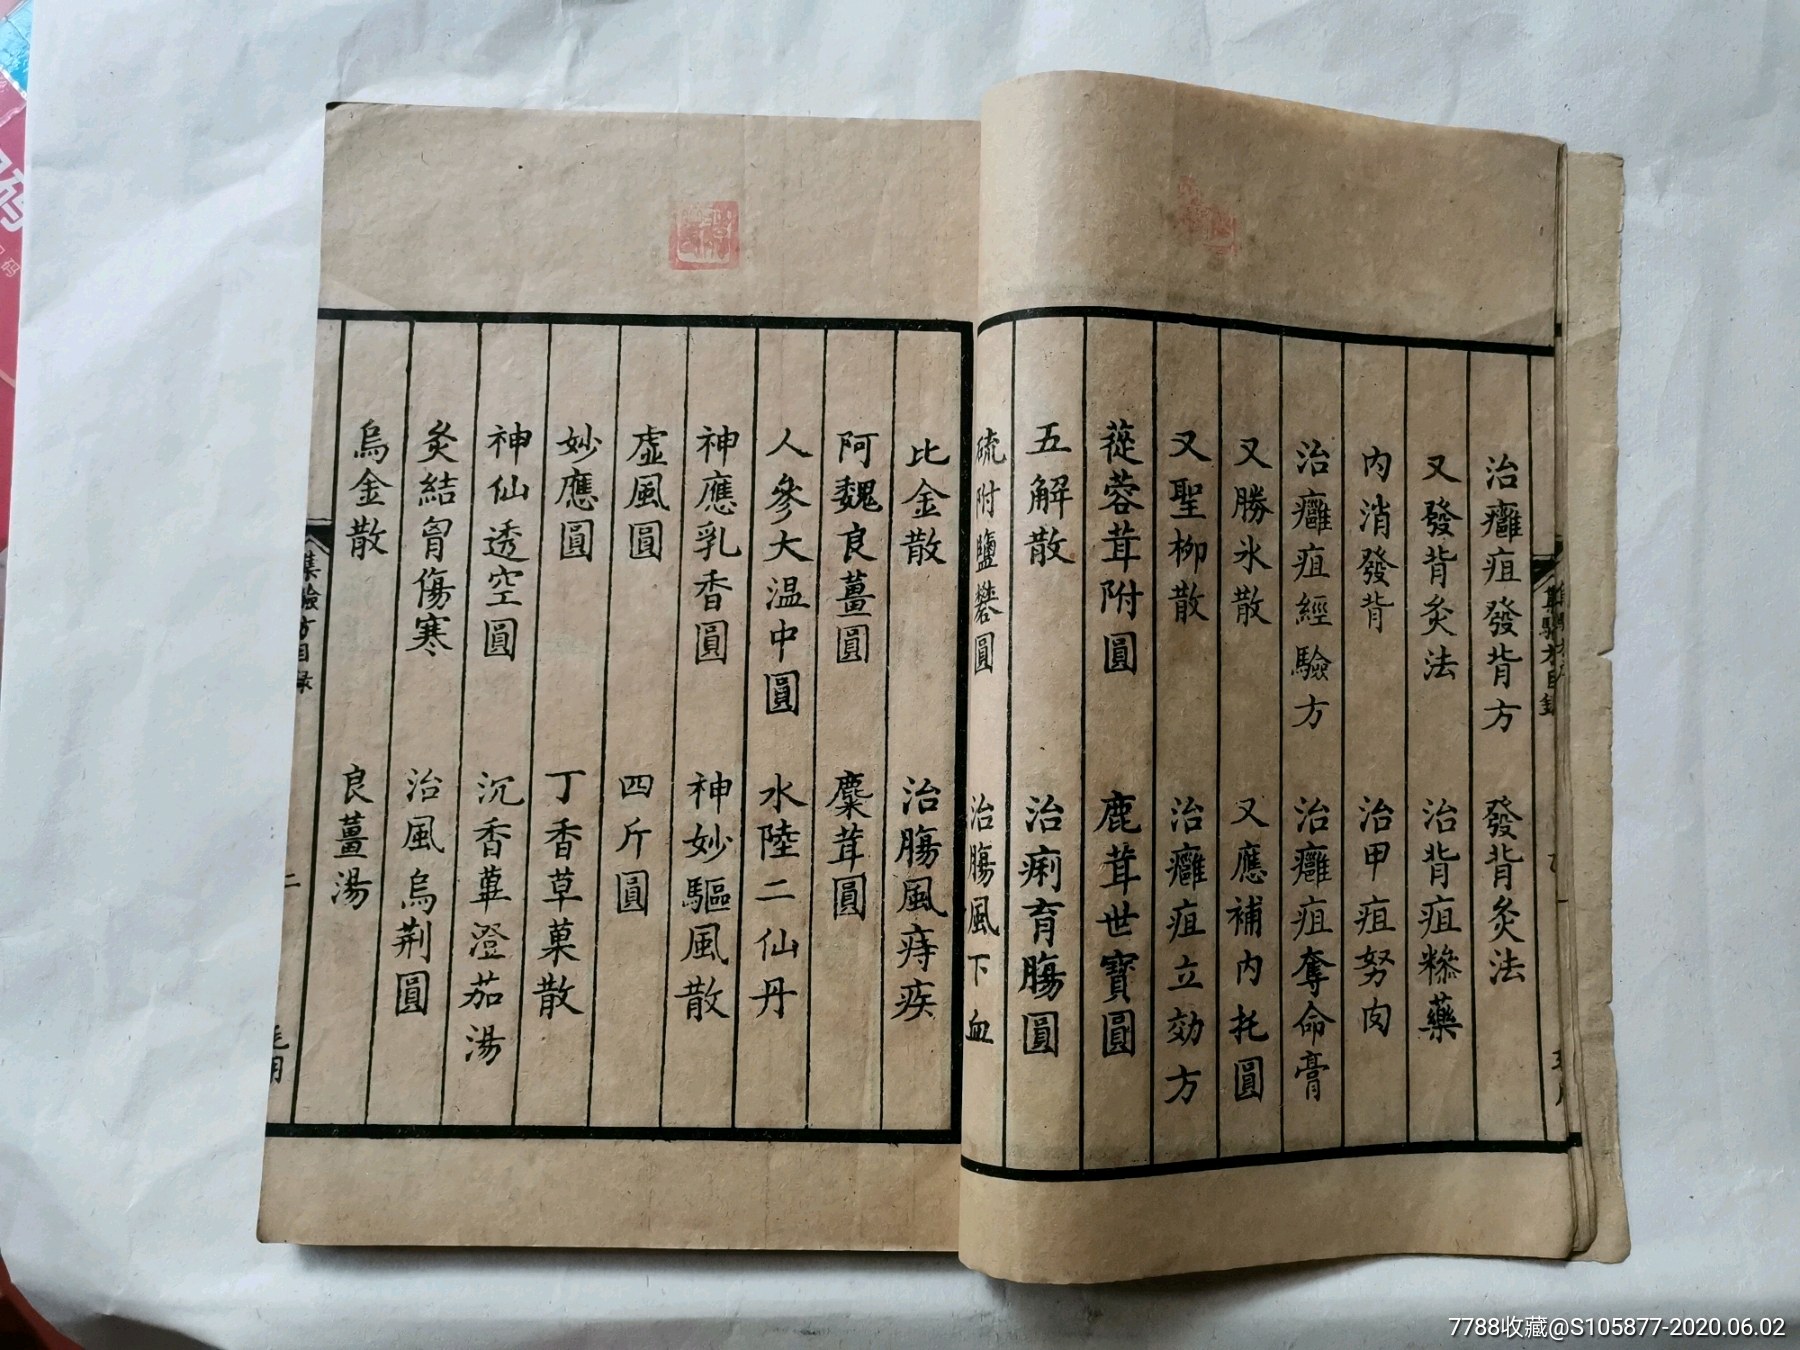 治癰疽發背方 發背灸法
又發背灸法 治背疽糝藥
內消發背 治甲疽努肉
治癰疽經驗方 治癰疽奪命膏
又勝氷散 又應補內托圓
又聖柳散 治癰疽立効方
蓯蓉茸附圓 鹿茸世寶圓
五解散 治痢育腸圓
硫附鹽礬圓 治腸風下血
比金散 治腸風痔疾
阿魏良薑圓 麋茸圓
人參大温中圓 水陸二仙丹
神應乳香圓 神妙驅風散
虛風圓 四斤圓
妙應圓 丁香草菓散
神仙透空圓 沉香蓽澄茄湯
灸結胷傷寒 治風烏荆圓
烏金散 良薑湯
集驗方目録
二
7788收藏@S105877-2020.06.02